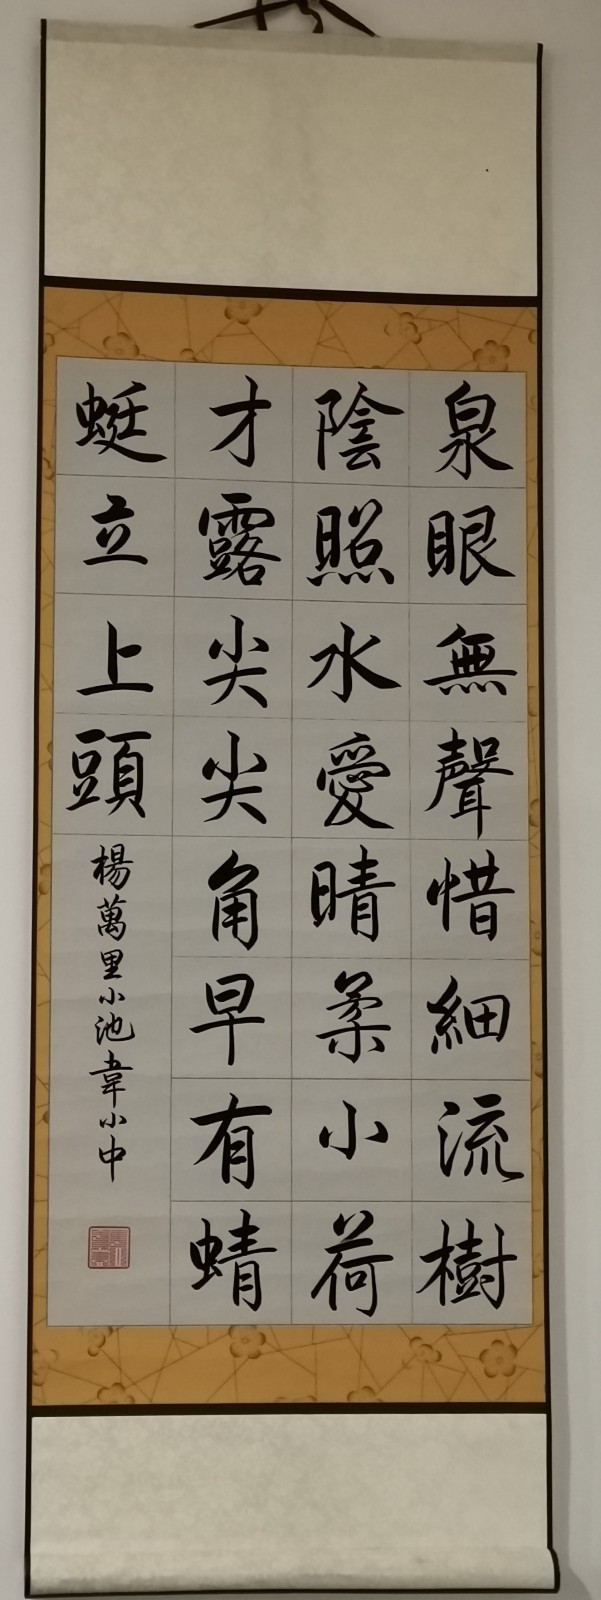 泉眼無聲惜細流樹
陰照水愛晴柔小荷
才露尖尖角早有蜻
蜓立上頭
楊萬里小池韋小中